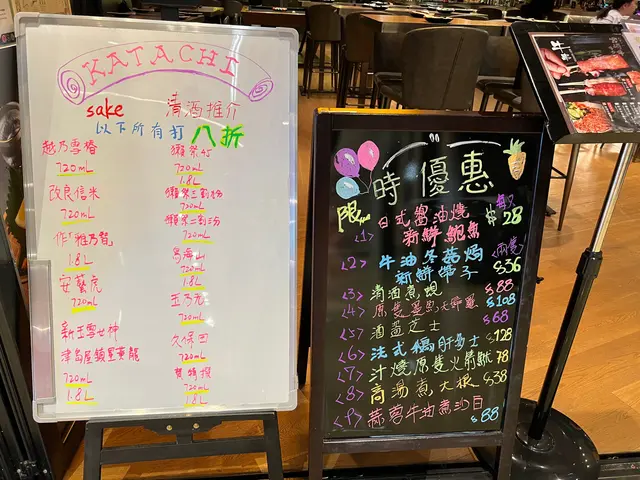 KATACHI
sake 清酒推介
以下所有打 八折
越乃雪椿
720mL
改良信米
720mL
作「雅乃智」
1.8L
安藝虎
720mL
新玉雪女神
720mL
1.8L
獺祭45
720mL
1.8L
獺祭三割九分
720mL
獺祭二割三分
720mL
鳥海山
720mL
1.8L
五乃克
720mL
久保田
720mL
1.8L
限時優惠
<1> 日式醬油燒
新鮮鮑魚 每隻 $28
<2> 牛油冬菇焗
新鮮帶子 (兩隻) $56
<3> 清酒煮蜆 $88
<4> $108
<5> 酒盜芝士 $68
<6> 法式鵝肝多士 $128
<7> 汁燒原隻火箭魷 78
<8> 高湯煮大根 $38
<9> 蒜蓉牛油煮沙白 $88